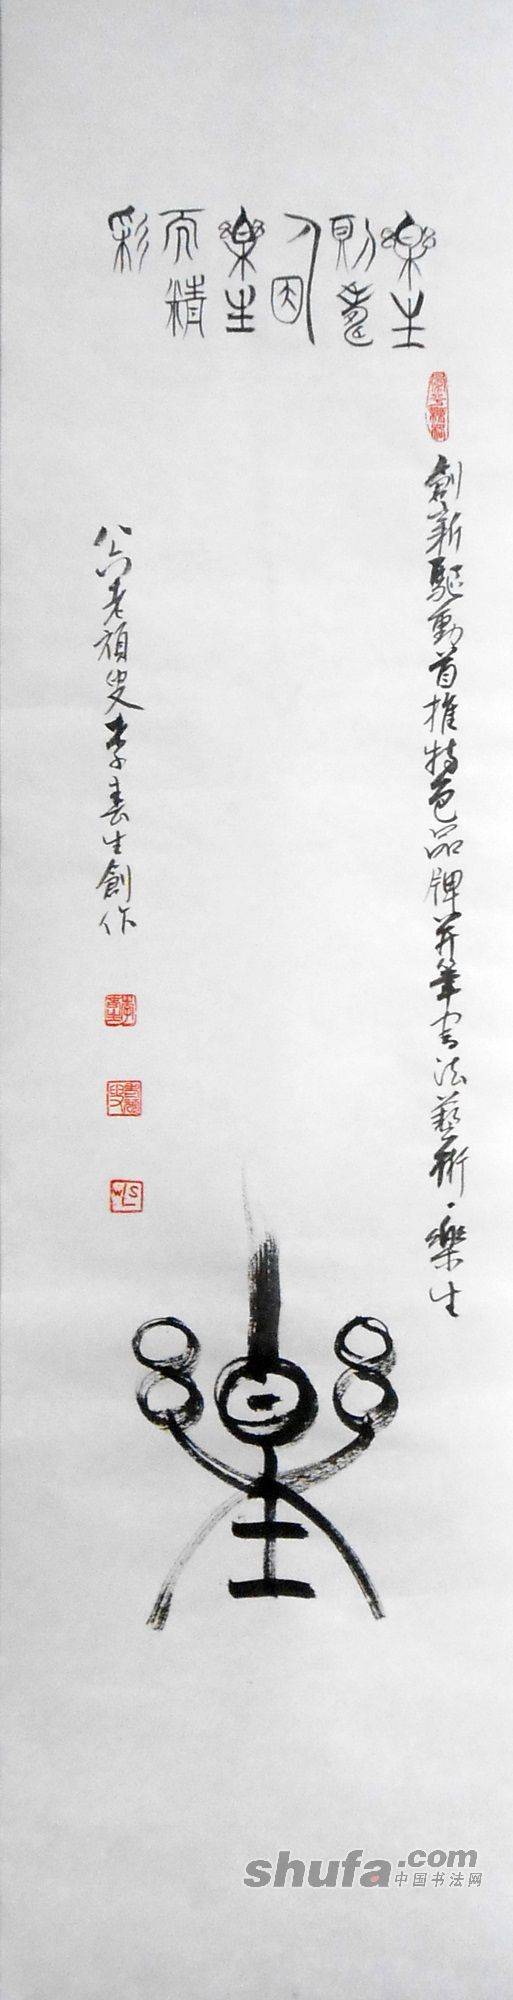 樂生
則壽
人因
樂生
而精
彩
創新驅動首推特色品牌并筆書法藝術·樂生
八六老頑叟李春生創作
樂生
shufa.com
中国书法网